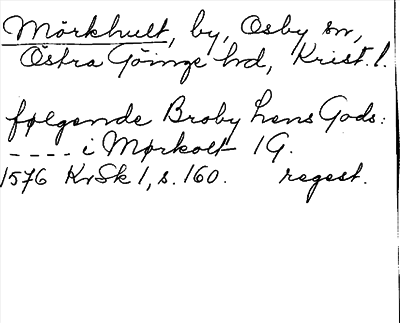 Mörkhult, by, Osby sn,
Östra Göinge hd, Krist. l.
følgende Broby Lens Gods:
---- i Mørkolt 1 G.
1576 KrSk 1, s. 160. regest.